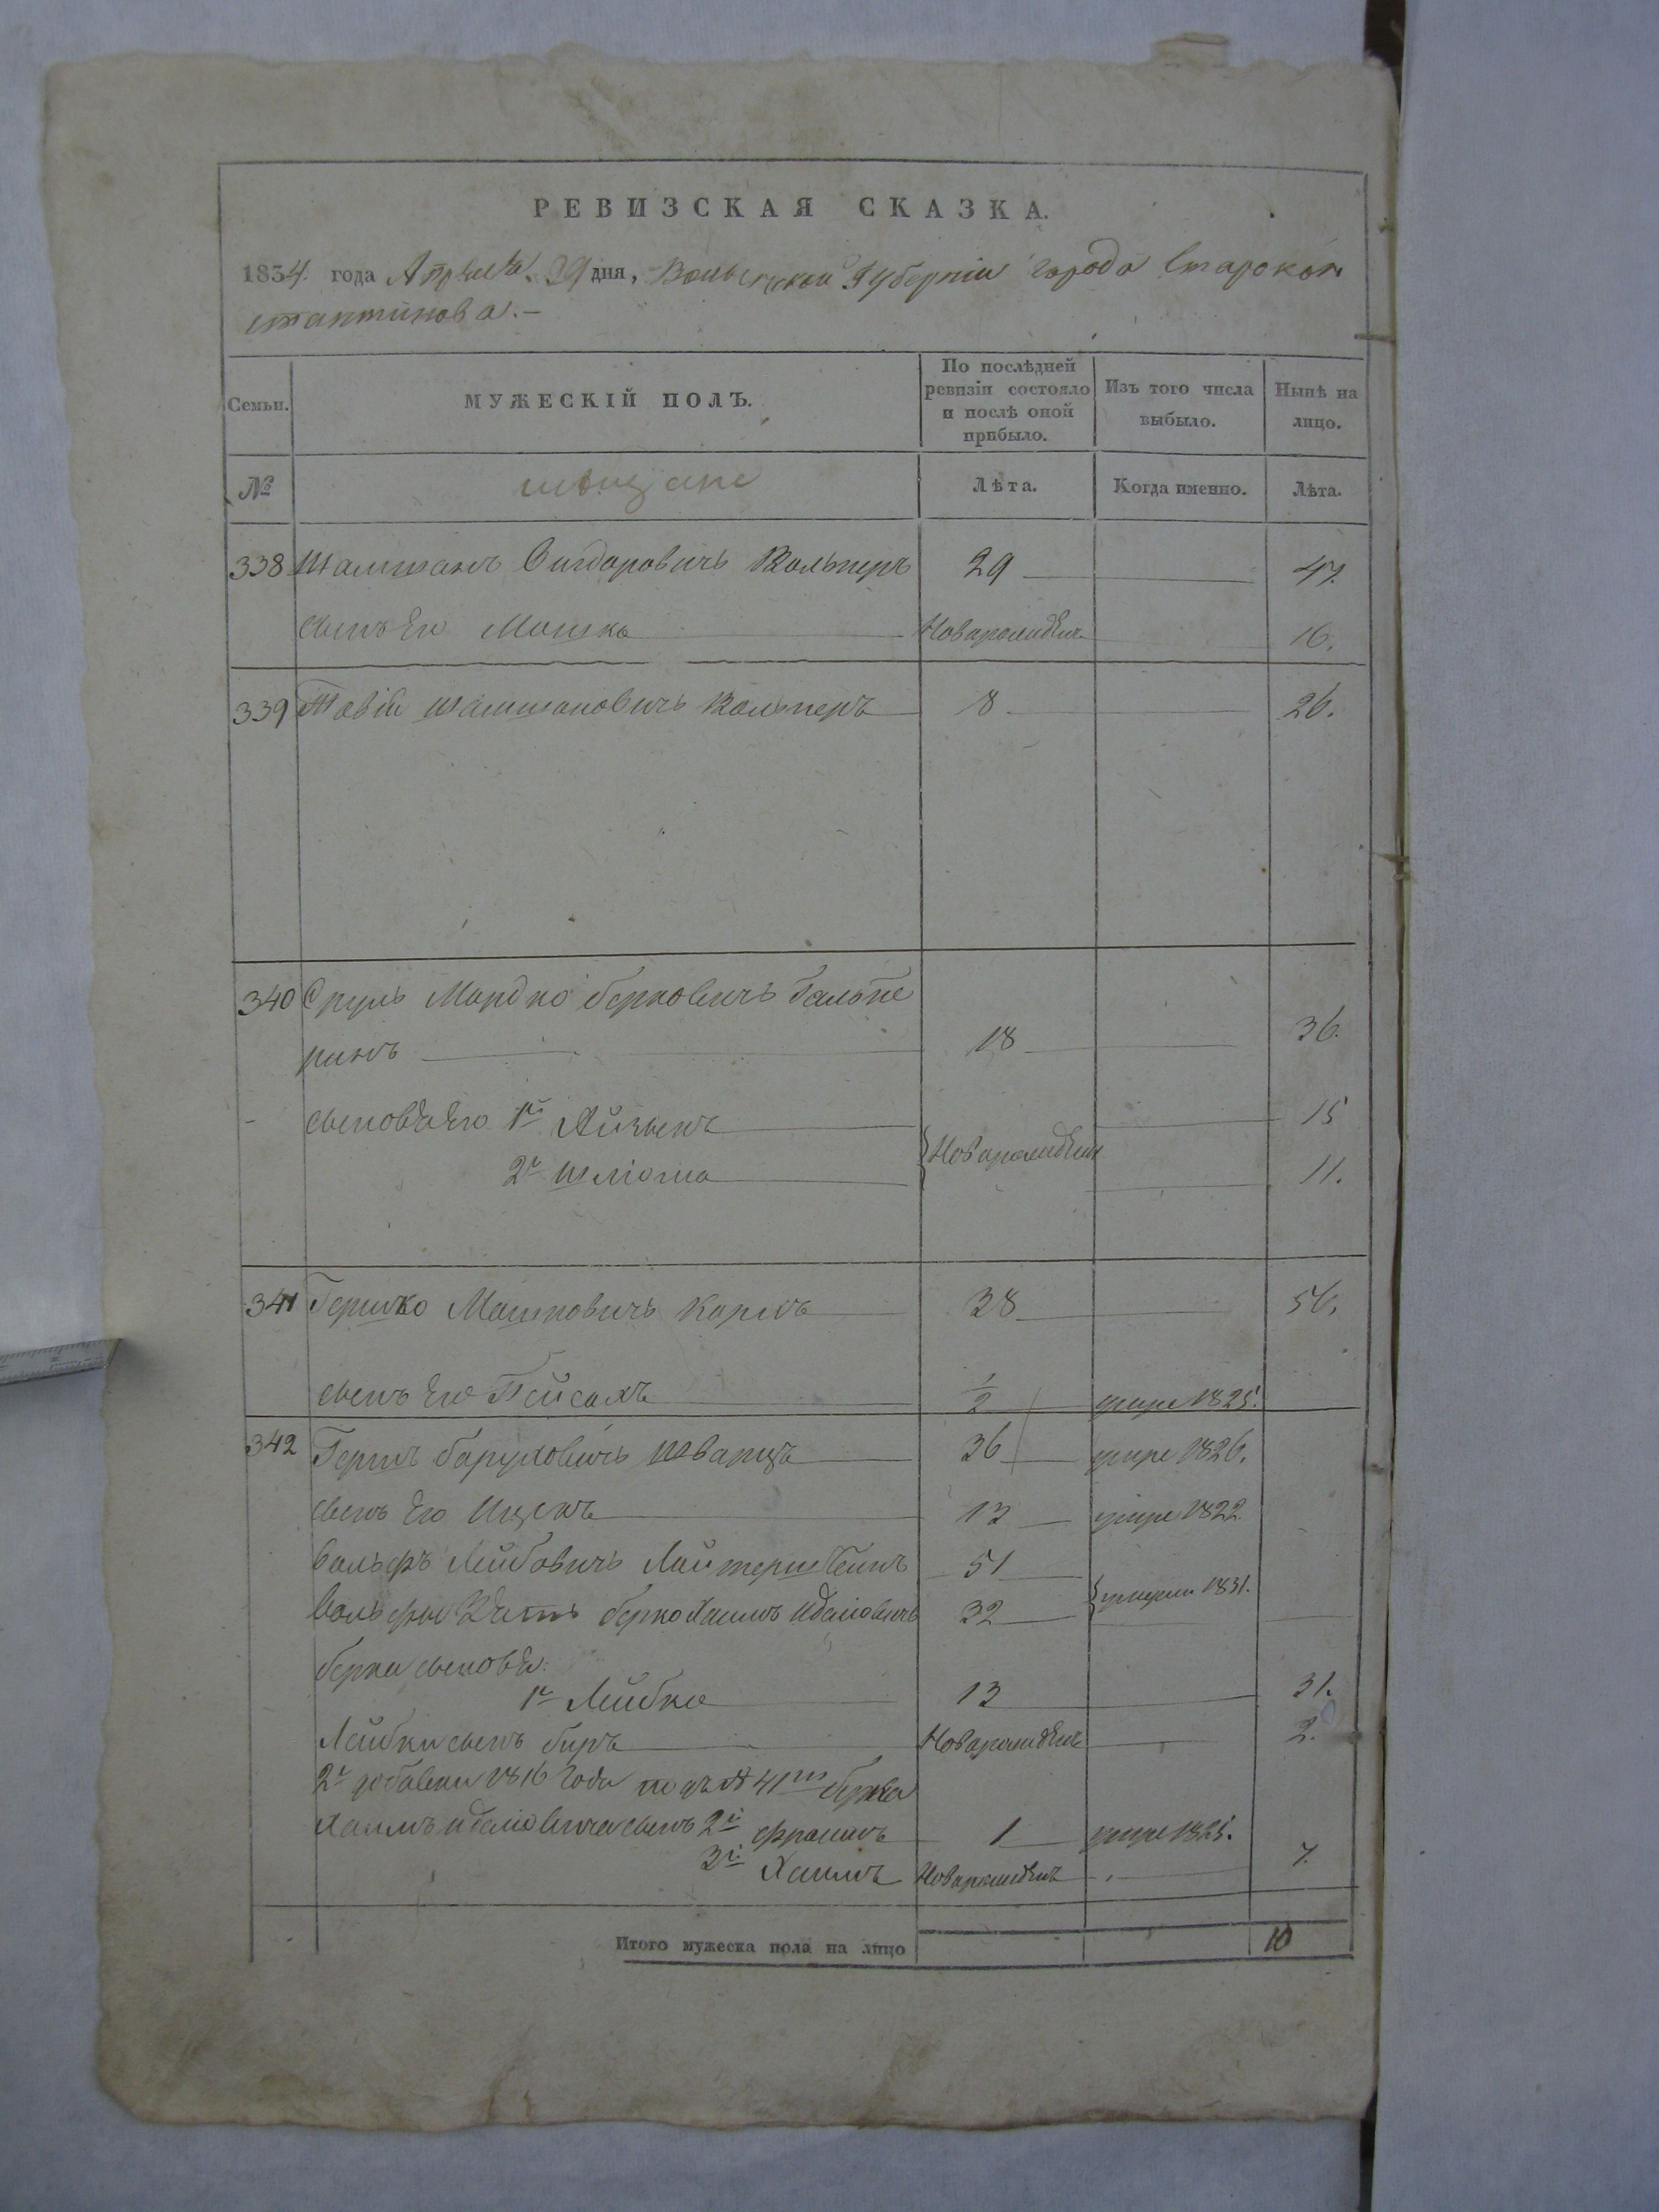 РЕВИЗСКАЯ СКАЗКА.
1834. года Апрѣля 29 дня, Волынской Губерніи города Старокон
стантинова.-
Семьи.
МУЖЕСКІЙ ПОЛЪ.
По послѣдней ревизіи состояло и послѣ оной прибыло.
Изъ того числа выбыло.
Нынѣ на лицо.
№
мѣщане
Лѣта.
Когда именно.
Лѣта.
338 Шамшонъ Вольперъ 29 47.
сынъ Его Мошко Новорожденъ 16.
339 Товій Шамшоновичъ Вольперъ 8 26.
340 Сруль Мордко Берковичъ Гальпе
ринъ 18 36.
сыновья Его 1й Айзыкъ 15
2й Шлiома Новорожден 11.
341 Гершко Мошковичъ Корикъ 38 56.
сынъ Его Пейсахъ 1/2 умре 1825.
342 Гершъ Баруховичъ Шварцъ 36 умре 1826.
сынъ Его Ицекъ 13 умре 1822
Вольфъ Лейбовичъ Лайтерштейнъ 51
Вольфы Зять Берко Хаимъ Идаiовичъ 32 умерли 1831.
Берка сыновья:
1й Лейбка 13 31.
Лейбки сынъ Беръ Новорожденъ 2.
2й добавки 1816 года подъ № 41м Берка
Хаимъ Идаiовича сынъ 2й Фроимъ 1 умре 1825.
3й Хаимъ Новорожденъ 7.
Итого мужеска пола на лицо 10